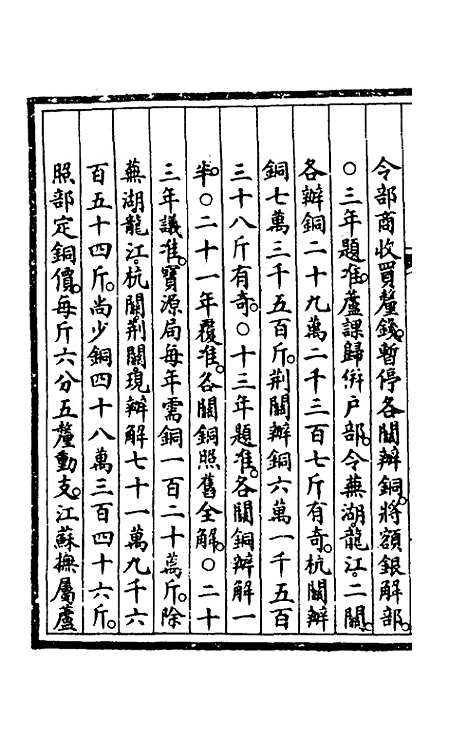 令部商收買釐錢。暫停各關辦銅。將額銀解部。
○三年題准。蘆課歸併戶部。令蕪湖。龍江。二關。
各辦銅二十九萬二千三百七斤有奇。杭關辦
銅七萬三千五百斤。荆關辦銅六萬一千五百
三十八斤有奇。○十三年題准。各關銅辦解一
半。○二十一年覆准。各關銅照舊全解。○二十
三年議准。寶源局每年需銅一百二十萬斤。除
蕪湖龍江。杭關荆關現辦解七十一萬九千六
百五十四斤。尚少銅四十八萬三百四十六斤。
照部定銅價。每斤六分五釐動支。江蘇撫屬蘆